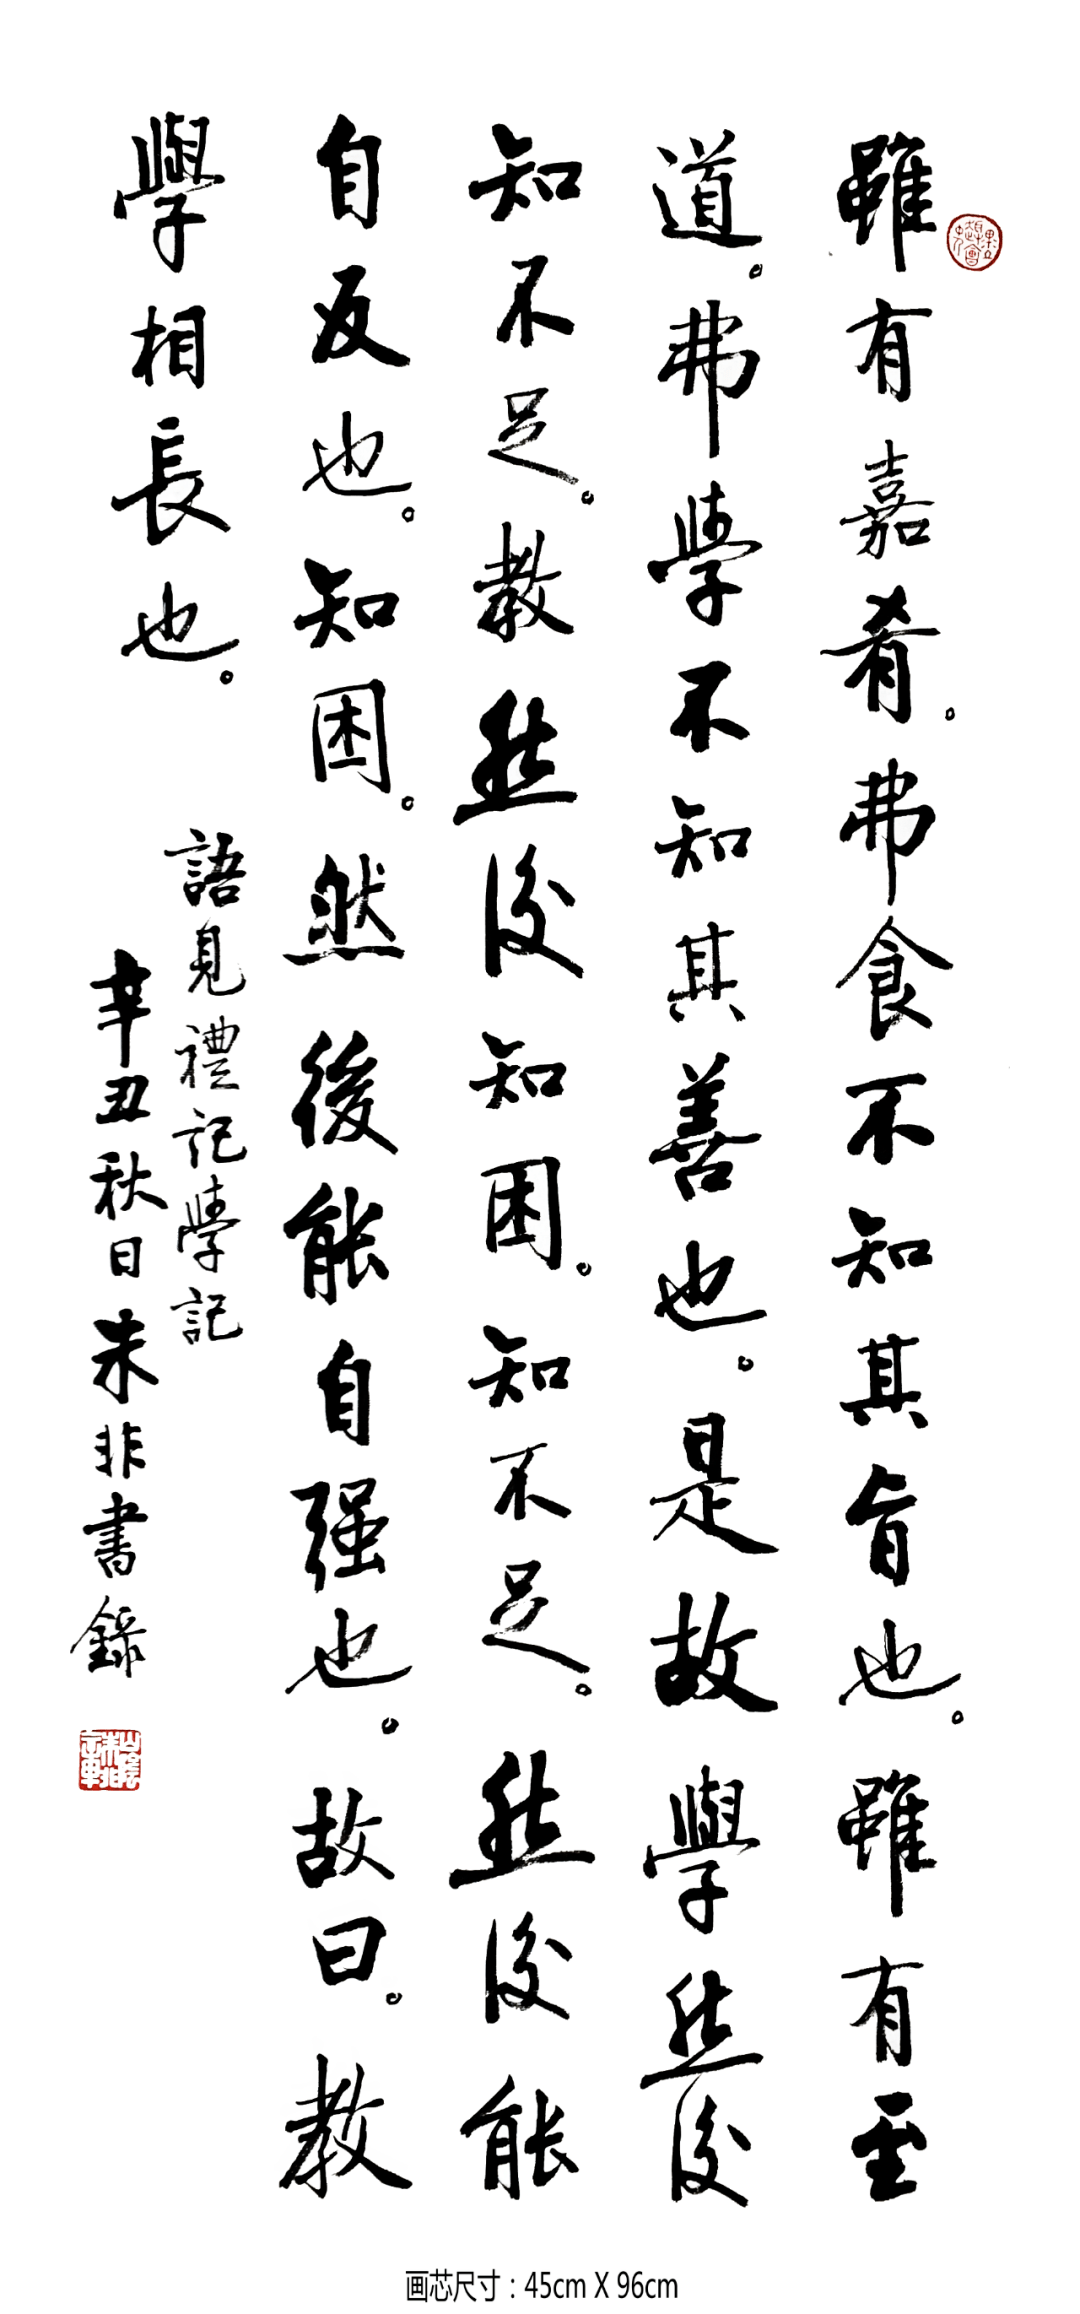 雖有嘉肴。弗食不知其旨也。雖有至
道。弗學不知其善也。是故學然後
知不足。教然後知困。知不足。然後能
自反也。知困。然後能自强也。故曰。教
學相長也。
語見禮記學記
辛丑秋日朱非書錄
画芯尺寸：45cm X 96cm